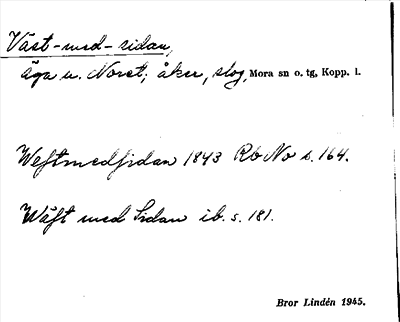 Väst-med-sidan,
äga u. Noret; åker, slog, Mora sn o. tg, Kopp. l.
Westmedsidan 1843 Rb No s. 164.
Wäst med Sidan ib. s. 181.
Bror Lindén 1945.